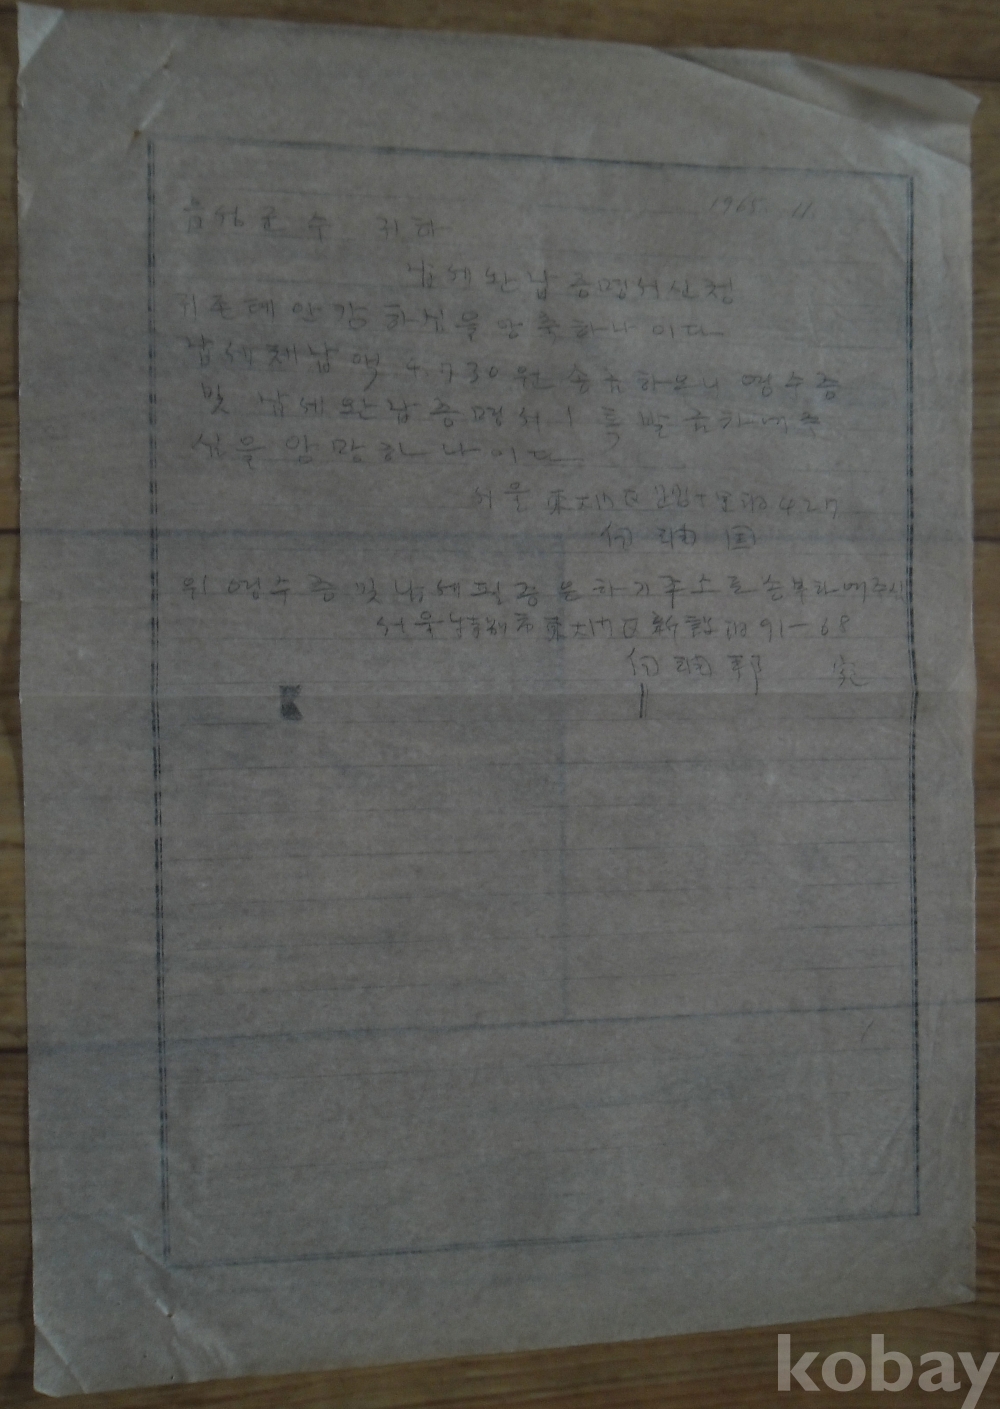 1965. 11.
음성군수 귀하
납세완납증명서신청
귀존체안강하심을앙축하나이다
납세체납액 4.730원송금하오니 영수증
및 납세완납증명서 1 특발급하여주
심을 앙망하나이다
서울 東大門区 427
위 영수증 및 납세필증을하기주소로송부하여주시
서울特別市東大門区新設洞 91-68
kobay